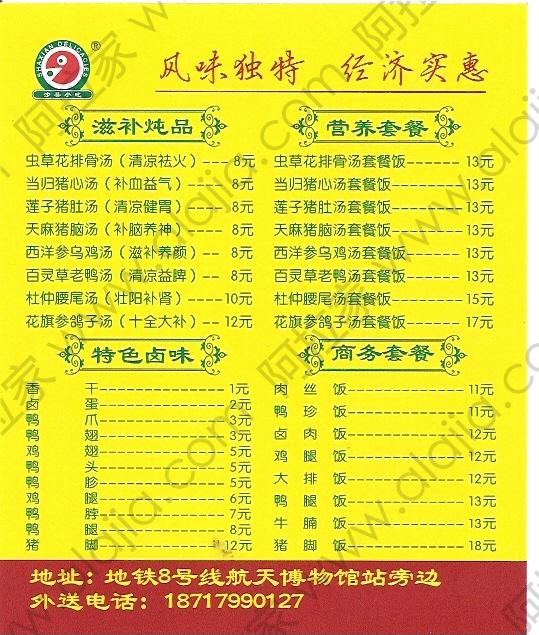 SHAXIAN DELICACIES
®
沙县小吃
风味独特 经济实惠
滋补炖品
虫草花排骨汤（清凉祛火）---8元
当归猪心汤（补血益气）---8元
莲子猪肚汤（清凉健胃）---8元
天麻猪脑汤（补脑养神）---8元
西洋参乌鸡汤（滋补养颜）--8元
百灵草老鸭汤（清凉益脾）--8元
杜仲腰尾汤（壮阳补肾）----10元
花旗参鸽子汤（十全大补）--12元
营养套餐
虫草花排骨汤套餐饭------13元
当归猪心汤套餐饭------13元
莲子猪肚汤套餐饭------13元
天麻猪脑汤套餐饭------13元
西洋参乌鸡汤套餐饭------13元
百灵草老鸭汤套餐饭------13元
杜仲腰尾汤套餐饭------15元
花旗参鸽子汤套餐饭------17元
特色卤味
香干------1元
卤蛋------2元
鸭爪------3元
鸭翅------3元
鸡翅------5元
鸭头------5元
鸭胗------5元
鸡腿------6元
鸭脖------7元
鸭腿------8元
猪脚------12元
商务套餐
肉丝饭------11元
鸭珍饭------11元
卤肉饭------12元
鸡腿饭------12元
大排饭------12元
鸭腿饭------13元
牛腩饭------13元
猪脚饭------18元
地址：地铁8号线航天博物馆站旁边
外送电话：18717990127
阿拉家 www.alajia.com